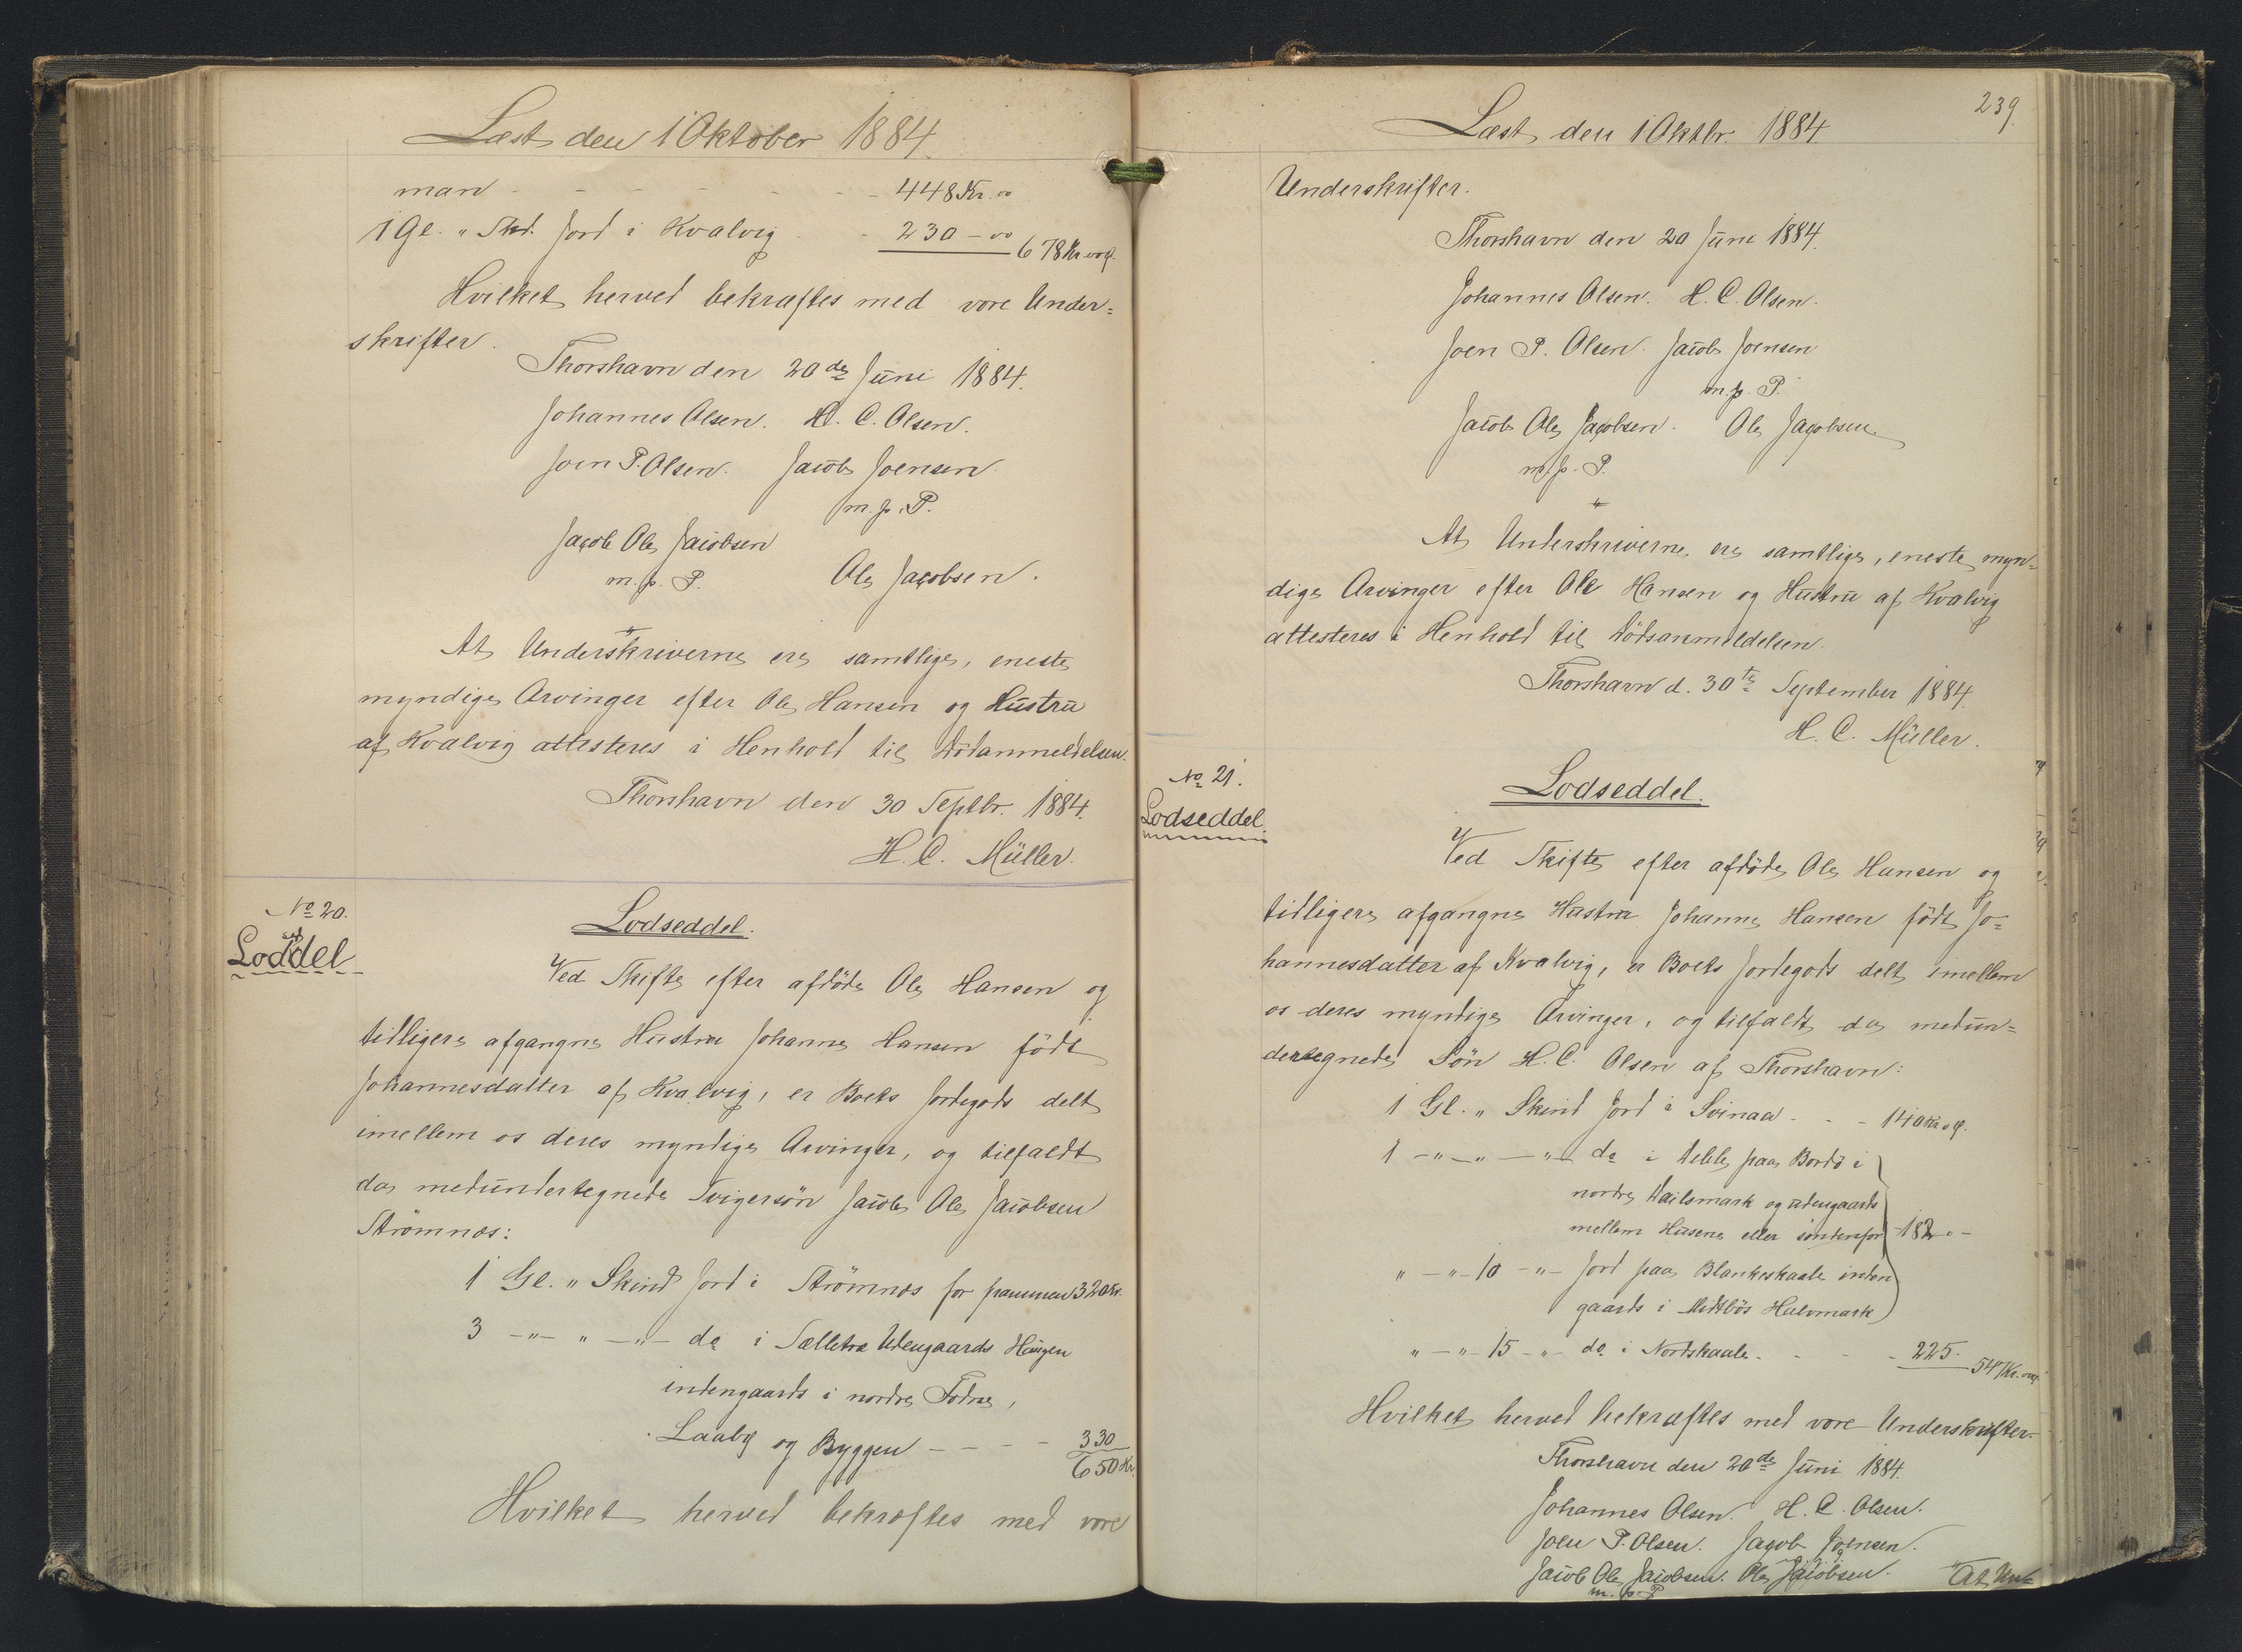 Læst den 1 Oktober 1884.
man - - - - - - 448 Kr. 00
1 Gl. " Skd. Jord i Kvalvig - - 230 - 00 678 Kr. 00 Ø.
Hvilket herved bekræftes med vore Under=
skrifter.
Thorshavn den 20de Juni 1884.
Johannes Olsen. H. C. Olsen.
Joen P. Olsen. Jacob Joensen.
m. p. P.
Jacob Ole Jacobsen
m. p. P. Ole Jacobsen.
At Underskriverne ere samtlige, eneste
myndige Arvinger efter Ole Hansen og Hustru
af Kvalvig attesteres i Henhold til Dödanmeldelsen.
Thorshavn den 30 Septbr. 1884.
H. C. Müller.
No 20.
Lodseddel
Lodseddel.
Ved Skifte efter afdöde Ole Hansen og
tidligere afgangne Hustru Johanne Hansen födt
Johannesdatter af Kvalvig, er Boets Jordegods delt
imellem os deres myndige Arvinger, og tilfaldt
da medundertegnede Svigersön Jacob Ole Jacobsen
Strömnæs:
1 Gl. " Skind Jord i Strömnæs for 320 Kr.
3 -"- " -"- do i Sælletræ Udengaards Haugen
indengaards i nordre Todnes,
Laaby og Byggen - - - - 330
650 Kr.
Hvilket herved bekræftes med vore
239.
Læst den 1 Oktbr. 1884
Underskrifter.
Thorshavn den 20 Juni 1884.
Johannes Olsen. H. C. Olsen.
Joen P. Olsen. Jacob Joensen
m. p. P.
Jacob Ole Jacobsen. Ole Jacobsen.
m. p. P.
At Underskriverne ere samtlige, eneste myn=
dige Arvinger efter Ole Hansen og Hustru af Kvalvig
attesteres i Henhold til Dödsanmeldelsen.
Thorshavn d. 30te September 1884.
H. C. Müller.
No 21.
Lodseddel.
Lodseddel.
Ved Skifte efter afdöde Ole Hansen og
tidligere afgangne Hustru Johanne Hansen födt Jo=
hannesdatter af Kvalvig, er Boets Jordegods delt imellem
os deres myndige Arvinger, og tilfaldt da medun=
dertegnede Sön H. C. Olsen af Thorshavn:
1 Gl. " Skind Jord i Svinaa - - - 140 Kr. 0 Ø.
1 -"- " -"- do i Deble paa Bordö i
nordre Dailsmark og udengaards
mellem Husene eller söndenfor 182 " -
" -"- 10 -"- Jord paa Blankeskaale inden
gaards i Midtbös Halvmark
" -"- 15 -"- do i Nordskaale - - - - 225. 547 Kr. 00 Ø.
Hvilket herved bekræftes med vore Underskrifter.
Thorshavn den 20de Juni 1884.
Johannes Olsen. H. C. Olsen.
Joen P. Olsen. Jacob Joensen.
Jacob Ole Jacobsen. Ole Jacobsen. At Un=
m. p. P